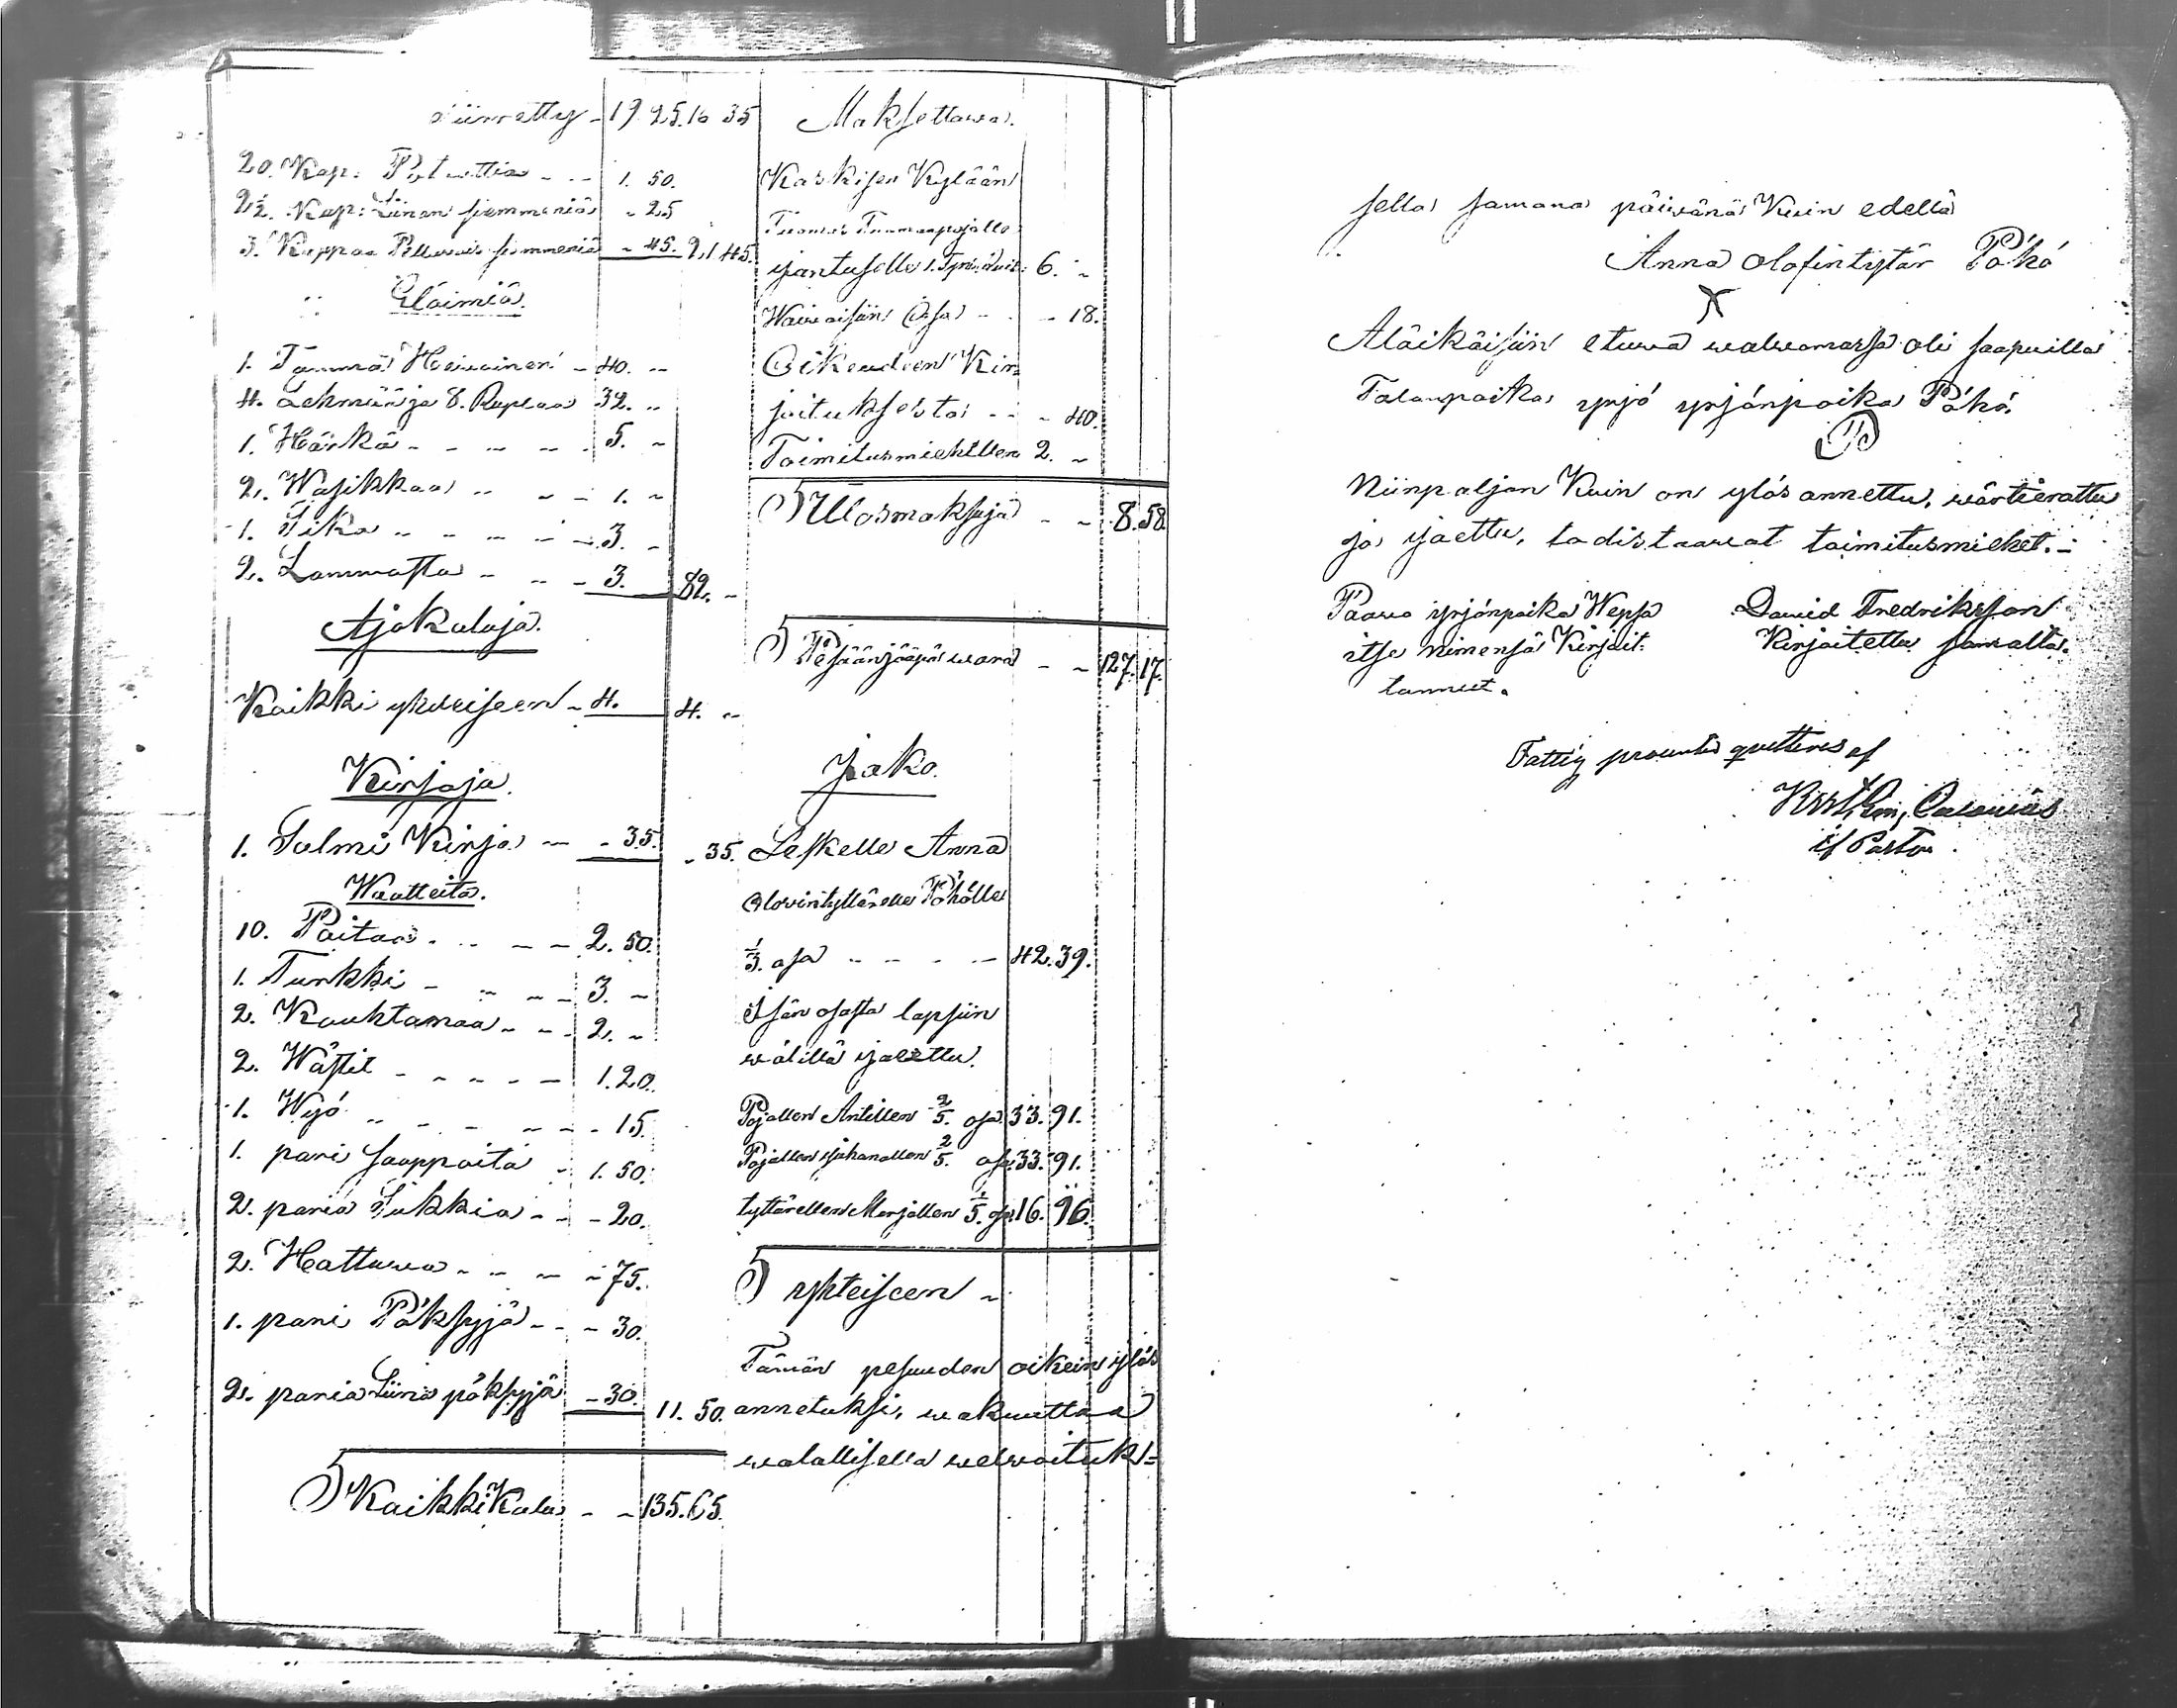 siirretty - 19. 25. 16 35
20. Kap: Potuttia - - 1. 50.
2½. Kap: Liinan siemmeniä - 25
3. Kappaa Pellavais siemmeniä - 45. 2. 45.
Eläimiä.
1. Tamma Hevoinen - 40. -
4. Lehmää ja 8. Ruplaa 32. -
1. Härkä - - - - 5. -
2. Wasikkaa - - - 1. -
1. Sika - - - - 3. -
2. Lammasta - - - 3. 82. -
Ajokaluja.
Kaikki yhteiseen - 4. 4. -
Kirjoja.
1. Salmi Kirja - - 35. - 35.
Waatteita.
10. Paitaa - - - - 2. 50.
1. Turkki - - - - 3. -
2. Kauhtanaa - - - 2. -
2. Wästit - - - - - 1. 20.
1. Wyö - - - - - - 15.
1. pari saappaita - 1. 50.
2. paria Sukkia - - - 20.
2. Hattua - - - - 75.
1. pari Pöksyjä - - - 30.
2. paria Liina pöksyjä - 30. 11. 50.
S Kaikki Kalu - - 135. 65.
Maksettawa.
Karkisen Kylään
Tuomas Tuomaanpojalle
jantuselle 6. -
Waiwaisiin Osa - - - 18.
Oikeudeen Kir=
joituksesta - - - 40.
Toimitusmiehillen 2. -
S Ulosmaksuja - - 8. 58.
S Pesäänjääpä wara - - 127. 17.
Jako.
Leskelle Anna
Olovintyttärelle Pöhölle
1/3. osa - - - - 42. 39.
Isän osasta lapsiin
wälillä jaettu.
Pojallen Antillen 2/5. osa. 33. 91.
Pojallen juhanallen 2/5. osa. 33. 91.
tyttärellen Marjallen 1/5. osa. 16. 96.
S yhteiseen -
Tämän pesuuden oikein ylös
annetuksi, wakuuttaa
walallisella welwoituk=
sella samana päiwänä Kuin edellä
Anna Olofintytär Pöhö
Aläikäisiin etuwa walwomassa oli saapuilla
Talanpoika yrjö yrjönpoika Pöhö.
Niinpaljon Kuin on ylös annettu, wärtieerattu
ja jaettu, todistaawat toimitusmiehet. -
Paawo yrjönpoika Wepsä
itse nimensä Kirjoit=
tannut.
Dawid Fredriksson
Kirjoitettu samalta.
Fattig procenten qvitteras af
i/ Pastor